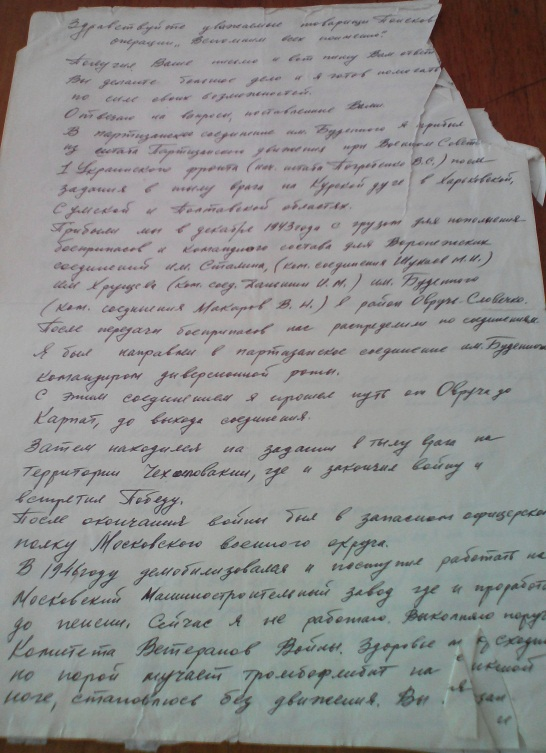 Здравствуйте уважаемые товарищи Поисков
операции „Вспомним всех поименно"
Получил Ваше письмо и вот пишу Вам ответ
Вы делаете большое дело и я готов помогать
по силе своих возможностей.
Отвечаю на вопросы, поставленные Вами
В партизанское соединение им. Буденного я прибыл
из штаба Партизанского движения при Военном Совете
1 Украинского фронта (нач. штаба Погребенко В.С.) посл
задания в тылу врага на Курской дуге в Харьковской,
Сумской и Полтавской областях.
Прибыли мы в декабре 1943 года с грузом для пополнения
боеприпасов и командного состава для Воронежских
соединений им. Сталина, (ком. соединения Шукаев М.И.)
им Хрущева (ком. соед. И.М.) им. Буденного
(ком. соединения Макаров В.Н.) в район Овруча-Словечно.
После передачи боеприпасов нас распределили по соединениям
Я был направлен в партизанское соединение им. Буденного
командиром диверсионной роты.
С этим соединением я прошел путь от Овруча до
Карпат, до выхода соединения.
Затем находился на задании в тылу врага на
территории Чехословакии, где и закончил войну и
встретил Победу.
После окончания войны был в запасном офицерском
полку Московского военного округа.
В 1946 году демобилизовался и поступил работать на
Московский Машиностроительный завод где и проработ
до пенсии. Сейчас я не работаю. Выполняю поруч
Комитета Ветеранов Войны. Здоровье сходи
но порой мучает тромбофлебит на
ноге, становлюсь без движения. Вы
и